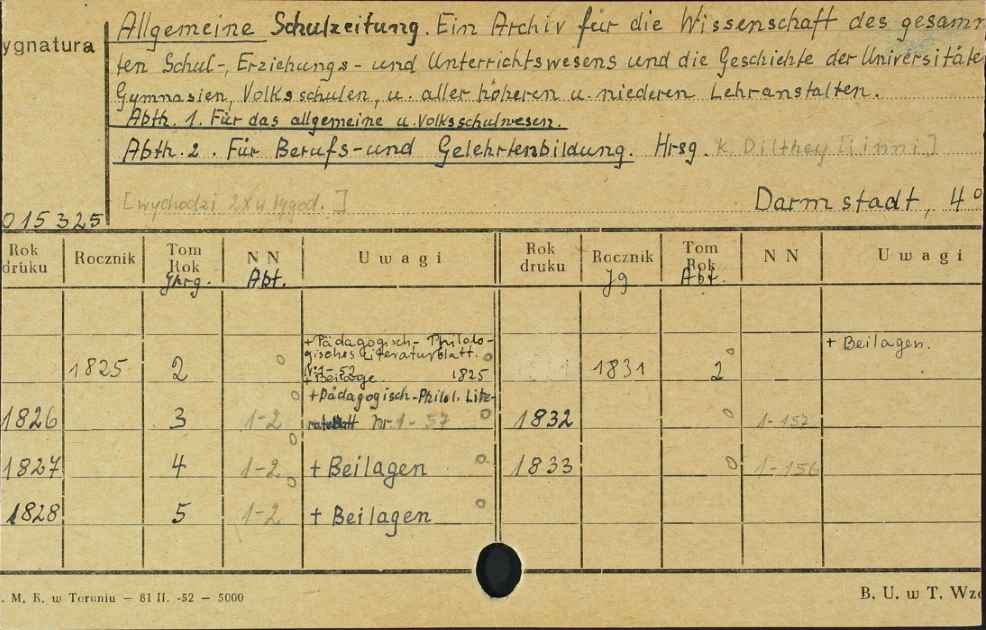 ygnatura
Allgemeine Schulzeitung. Ein Archiv für die Wissenschaft des gesamm
ten Schul-, Erziehungs- und Unterrichtswesens und die Geschichte der Universitäte
Gymnasien, Volksschulen, u. aller höheren u. niederen Lehranstalten.
Abth. 1. Für das allgemeine u. Volksschulwesen.
Abth. 2. Für Berufs- und Gelehrtenbildung. Hrsg. K. Dilthey [i inni]
[wychodzi 2 x w tygod.]
Darmstadt, 4°
015325
Rok druku Rocznik Tom Rok Jhrg. NN Abt. Uwagi Rok druku Rocznik Jg Tom Rok Abt. NN Uwagi
1825 2 + Pädagogisch-Philolo-
gisches Literaturblatt.
Nr 1-52
+ Beilage 1825
1831 2 + Beilagen.
1826 3 1-2 + Pädagogisch-Philol. Lite-
raturblatt Nr 1-57
1832 1-157
1827 4 1-2 + Beilagen 1833 1-156
1828 5 1-2 + Beilagen
. M. K. w Toruniu — 81 II. -52 — 5000
B. U. w T. Wzo